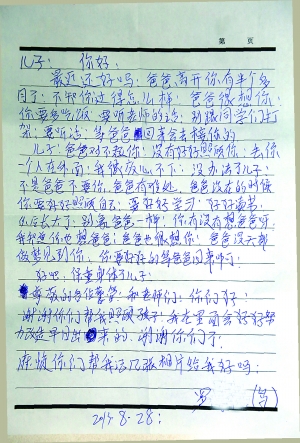 第 页
儿子: 你好:
最近还好吗: 爸爸离开你有半个多
月了: 不知你过得怎么样: 爸爸很想你:
你要多吃饭: 要听老师的话: 别跟同学们打
架: 要听话: 等爸爸回来会去接你的
儿子: 爸爸对不起你: 没有好好照顾你: 丢你
一个人在外面: 我很放心不下: 没办法了儿子:
不是爸爸不要你, 爸爸有难处, 爸爸没在的时候
你要好好照顾自己: 要好好学习: 好好读书:
以后长大了: 别象爸爸一样: 你有没有想爸爸呀:
我知道你也想爸爸: 爸爸也很想你: 爸爸没天都
做梦见到你, 你要好好的等爸爸回来啊:
好吧, 保重身体了儿子:
尊敬的各位警官和老师们: 你们好:
谢谢你们帮我照顾孩子: 我在里面会好好努
力改造早日出来的. 谢谢你们了:
麻烦你们帮我洗几张相片给我好吗:
罗
2015 8-28: